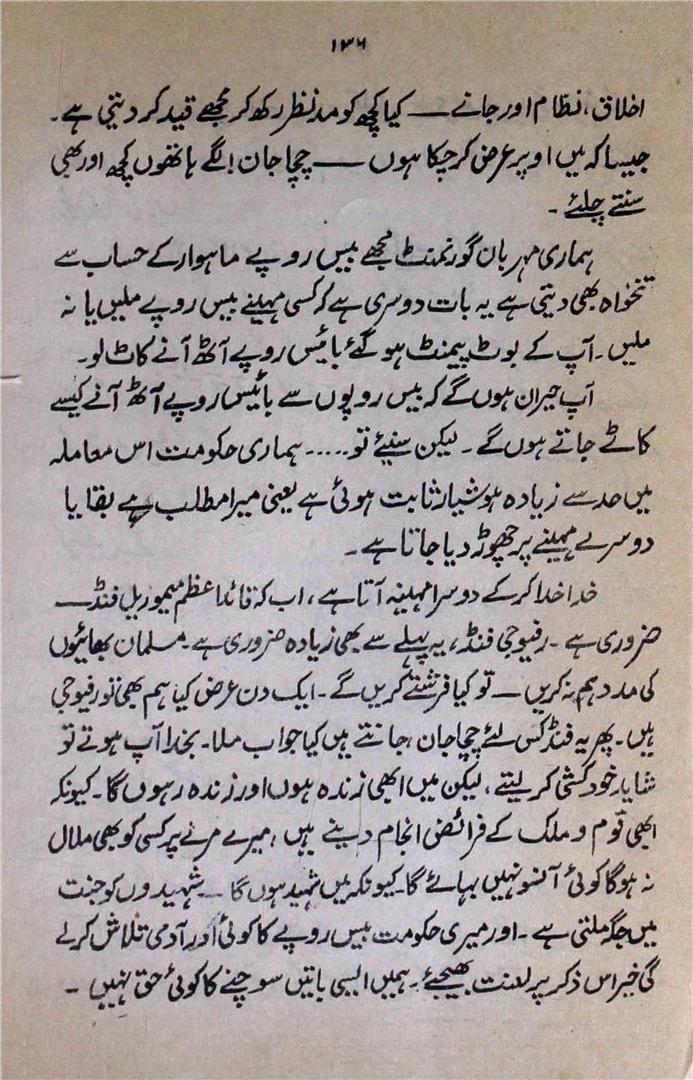 ۱۳۶
اخلاق، نظام اور جانے — کیا کچھ کو مدنظر رکھ کر مجھے قید کر دیتی ہے۔
جیسا کہ میں اوپر عرض کر چکا ہوں — چچا جان! لگے ہاتھوں کچھ اور بھی
سنتے چلئے۔
ہماری مہربان گورنمنٹ مجھے بیس روپے ماہوار کے حساب سے
تنخواہ بھی دیتی ہے یہ بات دوسری ہے کہ کسی مہینے بیس روپے ملیں یا نہ
ملیں۔ آپ کے بوٹ پیمنٹ ہو گئے بائیس روپے آٹھ آنے کاٹ لو۔
آپ حیران ہوں گے کہ بیس روپوں سے بائیس روپے آٹھ آنے کیسے
کاٹے جاتے ہوں گے۔ لیکن سنیئے تو..... ہماری حکومت اس معاملہ
میں حد سے زیادہ ہوشیار ثابت ہوئی ہے یعنی میرا مطلب ہے بقایا
دوسرے مہینے پر چھوڑ دیا جاتا ہے۔
خدا خدا کر کے دوسرا مہینہ آتا ہے، اب کہ قائداعظم میموریل فنڈ —
ضروری ہے۔ رفیوجی فنڈ، یہ پہلے سے بھی زیادہ ضروری ہے۔ مسلمان بھائیوں
کی مدد ہم نہ کریں — تو کیا فرشتے کریں گے۔ ایک دن عرض کیا ہم بھی تو رفیوجی
ہیں۔ پھر یہ فنڈ کس لئے چچا جان، جانتے ہیں کیا جواب ملا۔ بخدا آپ ہوتے تو
شاید خودکشی کر لیتے، لیکن میں ابھی زندہ ہوں اور زندہ رہوں گا۔ کیونکہ
ابھی قوم و ملک کے فرائض انجام دینے ہیں، میرے مرنے پر کسی کو بھی ملال
نہ ہو گا کوئی آنسو نہیں بہائے گا۔ کیونکہ میں شہید ہوں گا — شہیدوں کو جنت
میں جگہ ملتی ہے۔ اور میری حکومت بیس روپے کا کوئی اور آدمی تلاش کر لے
گی خیر اس ذکر پر لعنت بھیجیئے۔ ہمیں ایسی باتیں سوچنے کا کوئی حق نہیں۔